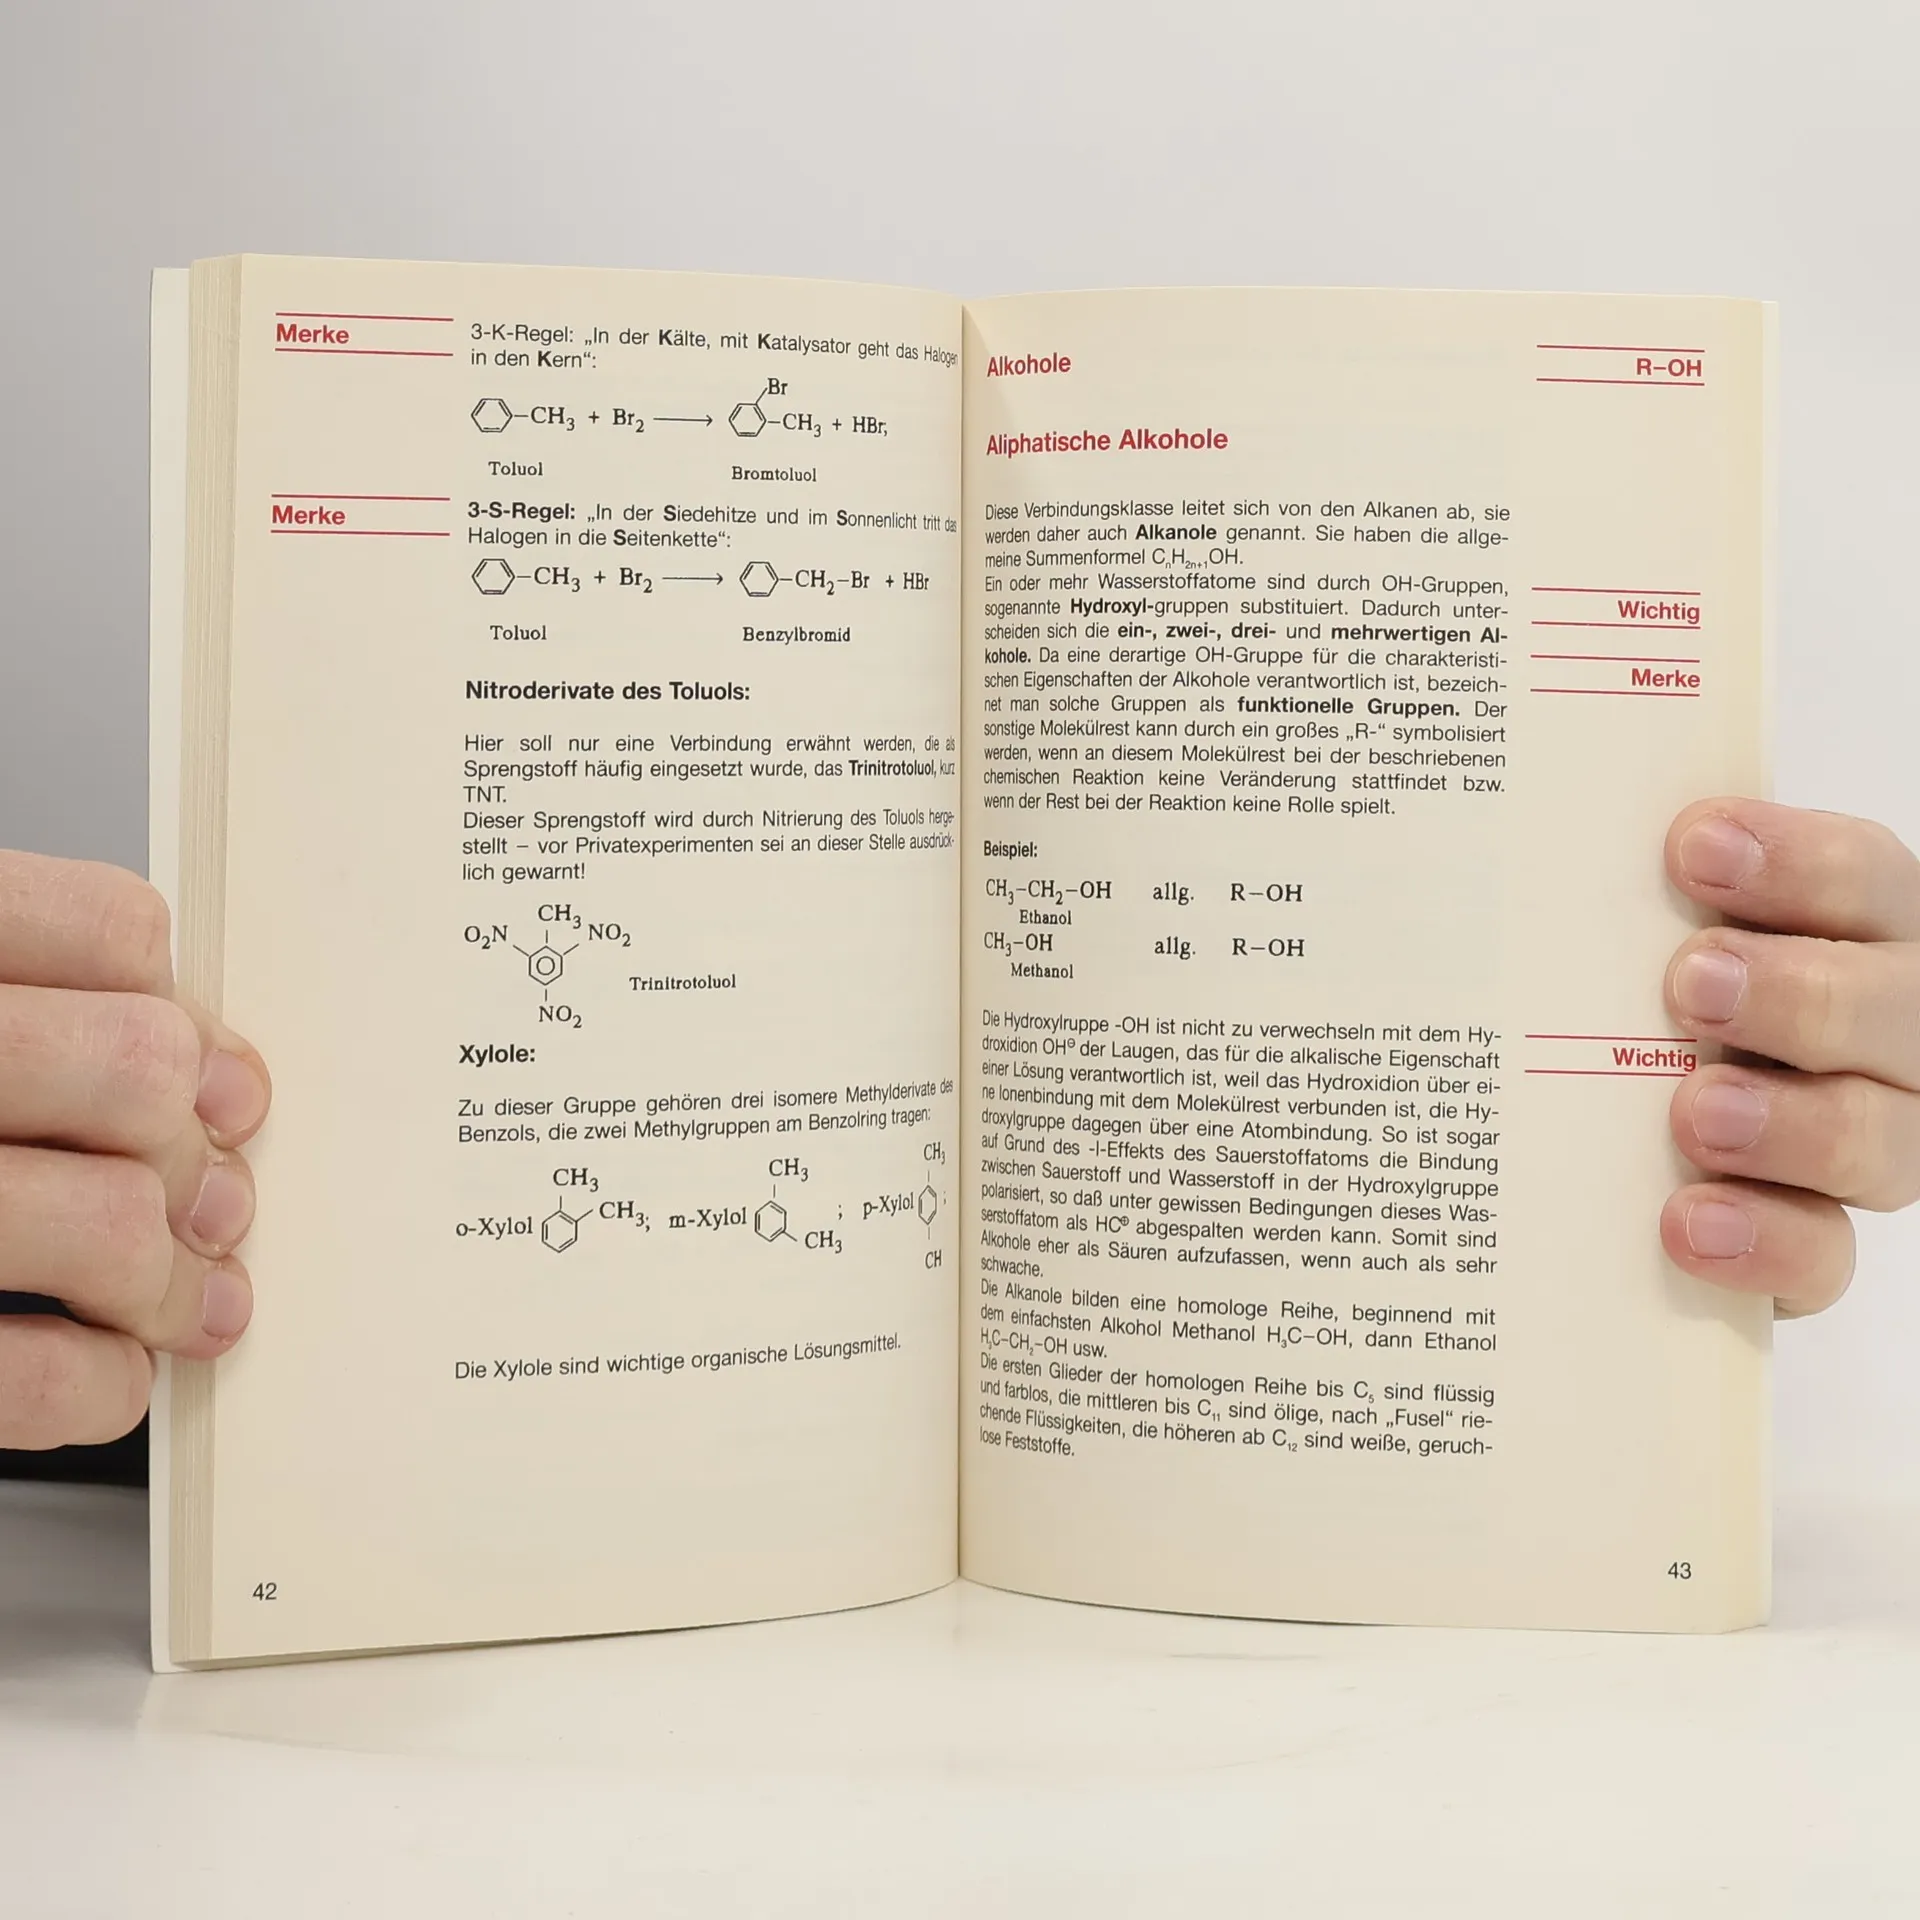 Merke
3-K-Regel: „In der Kälte, mit Katalysator geht das Halogen
in den Kern“:
Br
CH₃ + Br₂ ⟶ CH₃ + HBr,
Toluol Bromtoluol
Merke
3-S-Regel: „In der Siedehitze und im Sonnenlicht tritt das
Halogen in die Seitenkette“:
CH₃ + Br₂ ⟶ CH₂–Br + HBr
Toluol Benzylbromid
Nitroderivate des Toluols:
Hier soll nur eine Verbindung erwähnt werden, die als
Sprengstoff häufig eingesetzt wurde, das Trinitrotoluol, kurz
TNT.
Dieser Sprengstoff wird durch Nitrierung des Toluols herge-
stellt – vor Privatexperimenten sei an dieser Stelle ausdrück-
lich gewarnt!
CH₃
O₂N NO₂
Trinitrotoluol
NO₂
Xylole:
Zu dieser Gruppe gehören drei isomere Methylderivate des
Benzols, die zwei Methylgruppen am Benzolring tragen:
CH₃ CH₃ CH₃
o-Xylol CH₃; m-Xylol ; p-Xylol ;
CH₃ CH
Die Xylole sind wichtige organische Lösungsmittel.
42
Alkohole
R–OH
Aliphatische Alkohole
Diese Verbindungsklasse leitet sich von den Alkanen ab, sie
werden daher auch Alkanole genannt. Sie haben die allge-
meine Summenformel CₙH₂ₙ₊₁OH.
Ein oder mehr Wasserstoffatome sind durch OH-Gruppen,
sogenannte Hydroxyl-gruppen substituiert. Dadurch unter-
Wichtig
scheiden sich die ein-, zwei-, drei- und mehrwertigen Al-
kohole. Da eine derartige OH-Gruppe für die charakteristi-
schen Eigenschaften der Alkohole verantwortlich ist, bezeich-
Merke
net man solche Gruppen als funktionelle Gruppen. Der
sonstige Molekülrest kann durch ein großes „R-“ symbolisiert
werden, wenn an diesem Molekülrest bei der beschriebenen
chemischen Reaktion keine Veränderung stattfindet bzw.
wenn der Rest bei der Reaktion keine Rolle spielt.
Beispiel:
CH₃–CH₂–OH allg. R–OH
Ethanol
CH₃–OH allg. R–OH
Methanol
Die Hydroxylruppe -OH ist nicht zu verwechseln mit dem Hy-
droxidion OH⊖ der Laugen, das für die alkalische Eigenschaft
Wichtig
einer Lösung verantwortlich ist, weil das Hydroxidion über ei-
ne Ionenbindung mit dem Molekülrest verbunden ist, die Hy-
droxylgruppe dagegen über eine Atombindung. So ist sogar
auf Grund des -I-Effekts des Sauerstoffatoms die Bindung
zwischen Sauerstoff und Wasserstoff in der Hydroxylgruppe
polarisiert, so daß unter gewissen Bedingungen dieses Was-
serstoffatom als HC⊕ abgespalten werden kann. Somit sind
Alkohole eher als Säuren aufzufassen, wenn auch als sehr
schwache.
Die Alkanole bilden eine homologe Reihe, beginnend mit
dem einfachsten Alkohol Methanol H₃C–OH, dann Ethanol
H₃C–CH₂–OH usw.
Die ersten Glieder der homologen Reihe bis C₅ sind flüssig
und farblos, die mittleren bis C₁₁ sind ölige, nach „Fusel“ rie-
chende Flüssigkeiten, die höheren ab C₁₂ sind weiße, geruch-
lose Feststoffe.
43